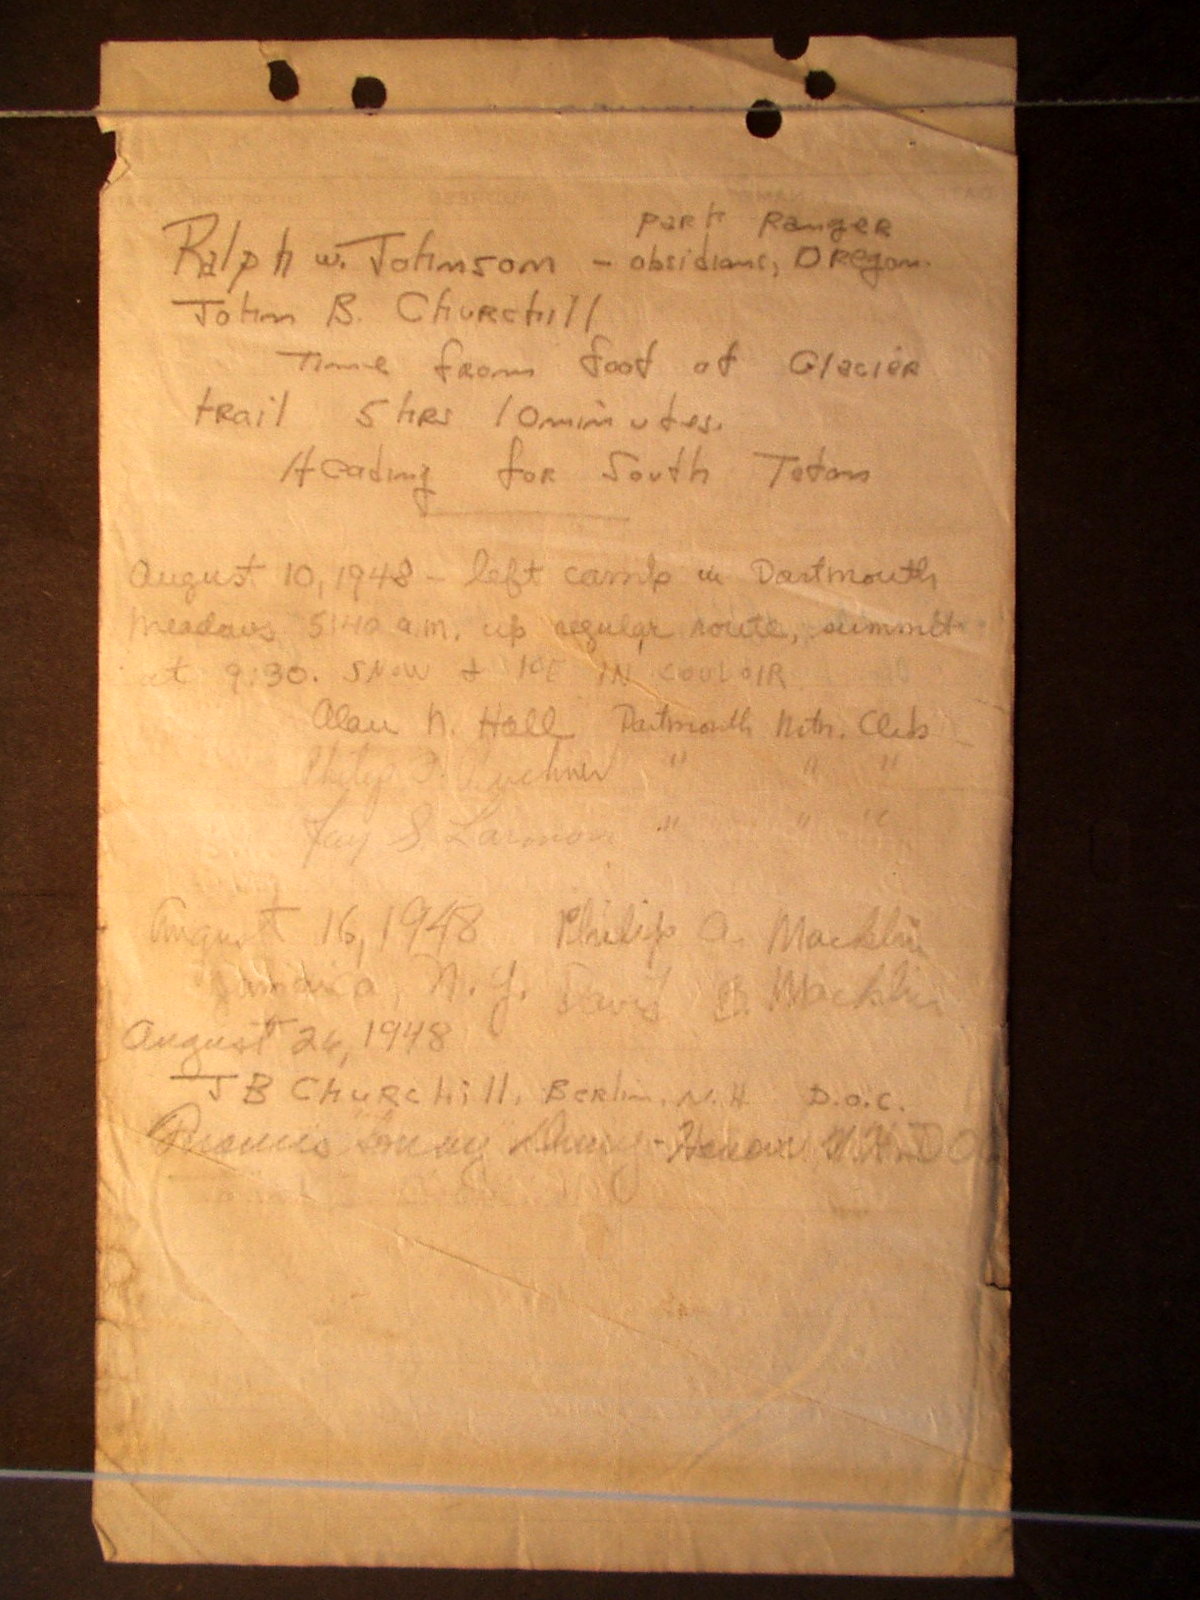 Park Ranger
Ralph W. Johnson - Obsidians, Oregon.
John B. Churchill
Time from foot of Glacier
trail 5 hrs 10 minutes.
Heading for South Teton
August 10, 1948 - left camp in Dartmouth
Meadows 5:40 a.m. up regular route, summit
at 9:30. SNOW & ICE IN COULOIR
Alan N. Hall Dartmouth Mtn. Club
Philip " " "
Jay S. Larmon " " "
August 16, 1948 Philip A. Macklin
Jamaica, N.Y. David B. Macklin
August 26, 1948
J B Churchill, Berlin, N.H. D.O.C.
Hanover N.H. DOC